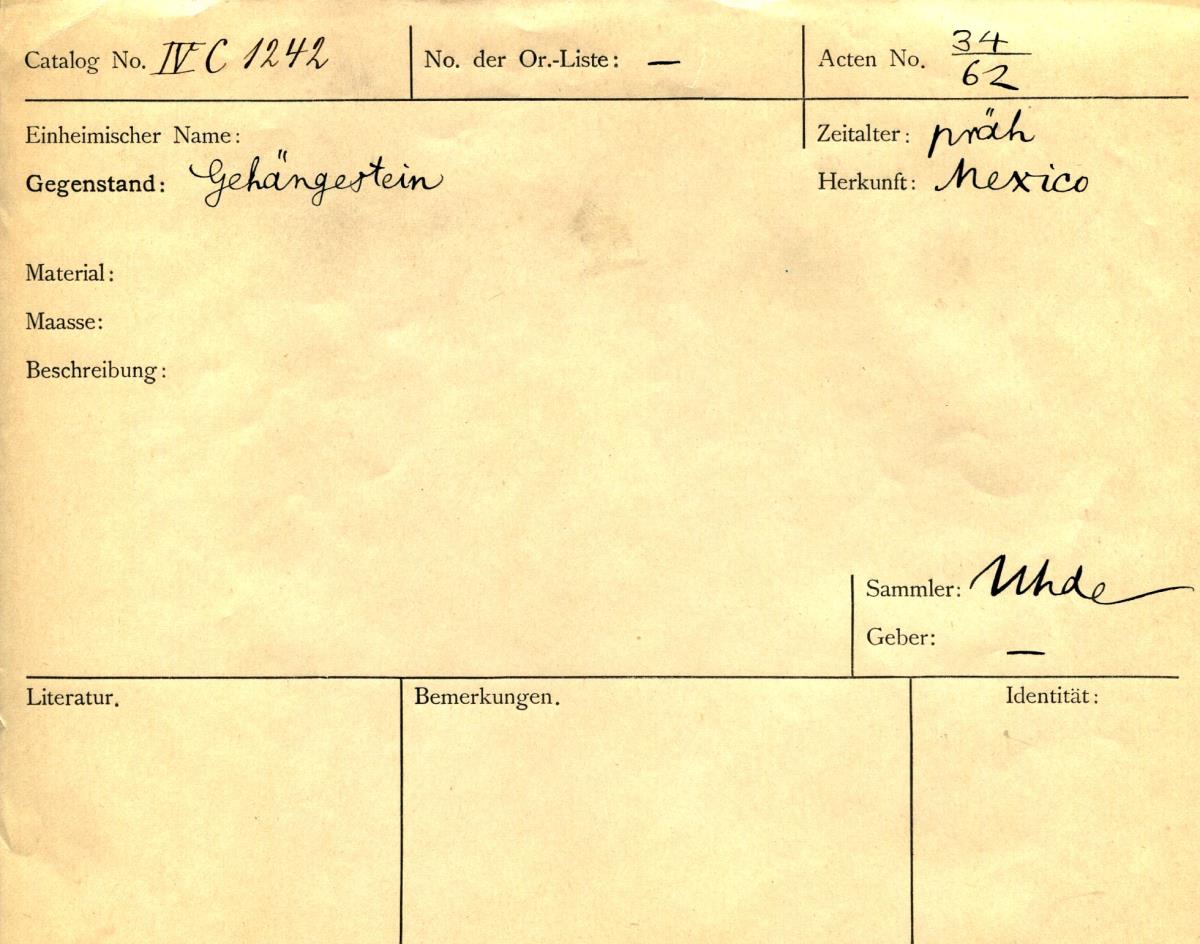 Catalog No. IV C 1242 No. der Or.-Liste: — Acten No. 34/62
Einheimischer Name: Zeitalter: präh
Gegenstand: Gehängestein Herkunft: Mexico
Material:
Maasse:
Beschreibung:
Sammler: Uhde
Geber: —
Literatur. Bemerkungen. Identität: